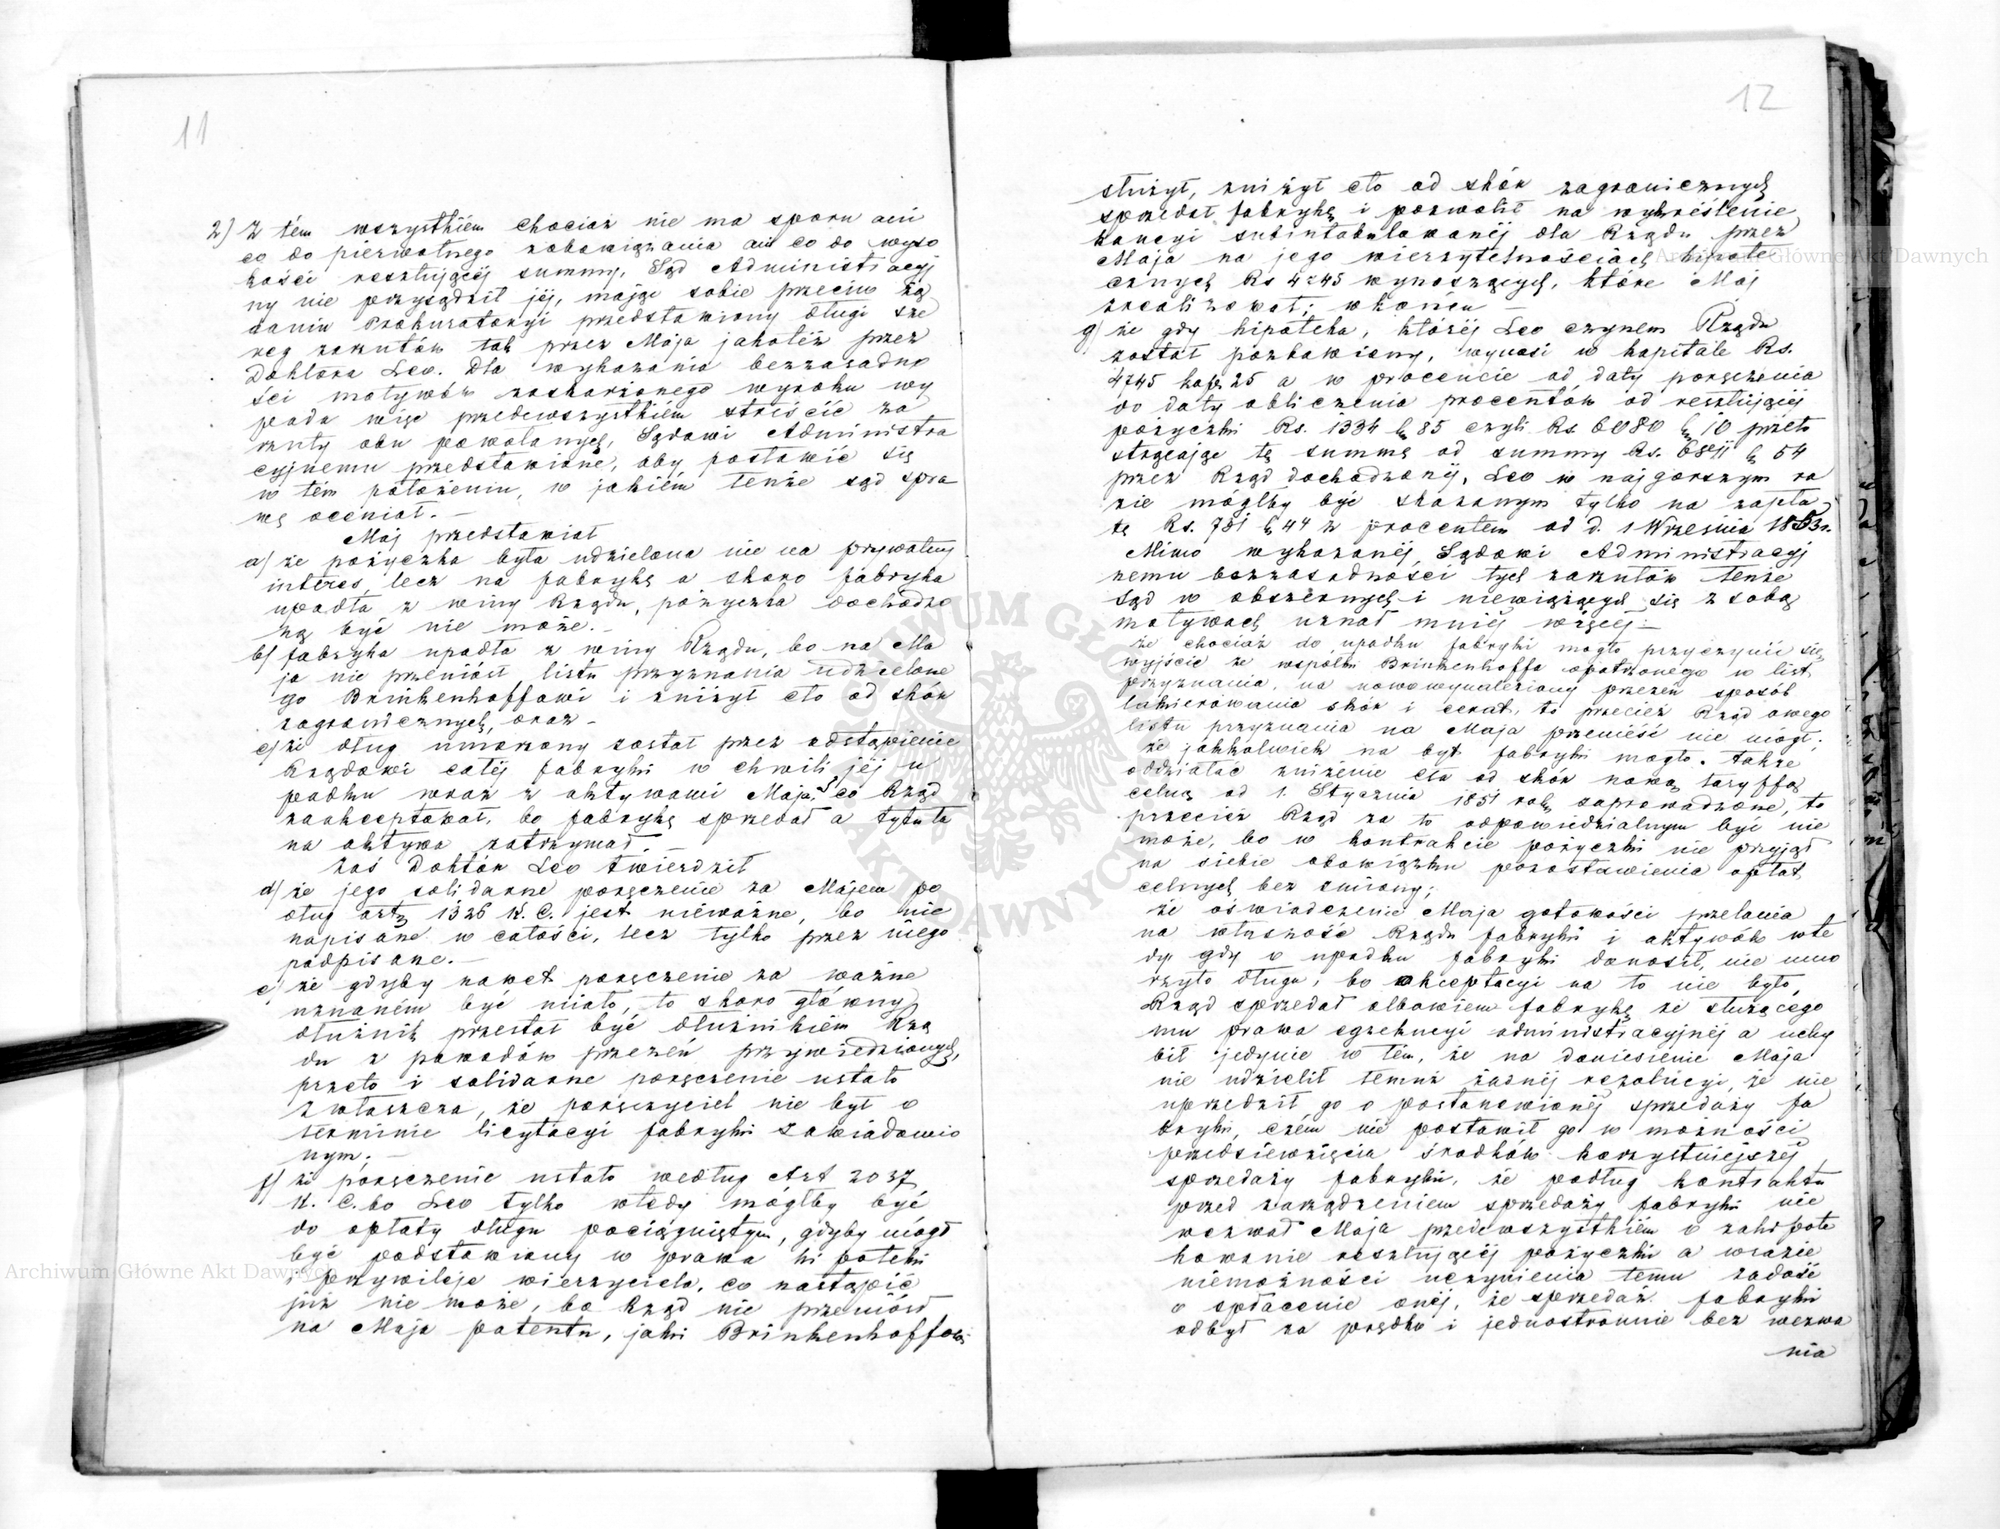 11
2) Z tém wszystkiém chociaż nie ma sporu ani
co do pierwotnego zobowiązania ani co do wyso
kości resztującéj summy, Sąd Administracyj
ny nie przysądził jéj, mając sobie przeciw żą
daniu Prokuratoryi przedstawiony długi sze
reg zarzutów tak przez Maja jakotéż przez
Doktora Leo. Dla wykazania bezzasadno
ści motywów zaskarżonego wyroku wy
pada więc przedewszystkiém streścić za
rzuty obu powołanych, Sądowi Administra
cyjnemu przedstawione, aby postawić się
w tém położeniu, w jakiém tenże sąd spra
wę oceniał. —
Maj przedstawiał
a) że pożyczka była udzielona nie na prywatny
interes, lecz na fabrykę a skoro fabryka
upadła z winy Rządu, pożyczka dochodzo
ną być nie może. —
b) fabryka upadła z winy Rządu, bo na Ma
ja nie przeniósł listu przyznania udzielone
go Brinkenhoffowi i zniżył cło od skór
zagranicznych, oraz —
c) że dług umorzony został przez odstąpienie
Rządowi całéj fabryki w chwili jéj u
padku wraz z aktywami Maja, co Rząd
zaakceptował, bo fabrykę sprzedał a tytuła
na aktywa zatrzymał. —
Zaś Doktór Leo twierdził
d) że jego solidarne poręczenie za Majem po
dług art. 1326 K. C. jest nieważne, bo nie
napisane w całości, lecz tylko przez niego
podpisane. —
e) że gdyby nawet poręczenie za ważne
uznaném być miało, to skoro główny
dłużnik przestał być dłużnikiem Rzą
du z powodów przezeń przywiedzionych,
przeto i solidarne poręczenie ustało
zwłaszcza, że poręczyciel nie był o
terminie licytacyi fabryki zawiadomio
nym; —
f) że poręczenie ustało według Art 2037
K. C. bo Leo tylko wtedy mógłby być
do opłaty długu pociągniętym, gdyby mógł
być podstawiony w prawa hipoteki
i przywileje wierzyciela, co nastąpić
już nie może, bo Rząd nie przeniósł
na Maja patentu, jaki Brinkenhoffowi
12
służył, zniżył cło od skór zagranicznych
sprzedał fabrykę i pozwolił na wykreślenie
kaucyi subintabulowanéj dla Rządu przez
Maja na jego wierzytelnościach hipote
cznych Rs 4745 wynoszących, które Maj
zrealizował; wkońcu —
g) że gdy hipoteka, któréj Leo czynem Rządu
został pozbawiony, wynosi w kapitale Rs.
4745 kop. 25 a w procencie od daty poręczenia
do daty obliczenia procentów od resztującéj
pożyczki Rs. 1334 k. 85 czyli Rs. 6080 k. 10 przeto
strącając tę summę od summy Rs. k. 54
przez Rząd dochodzonéj, Leo w najgorszym ra
zie mógłby być skazanym tylko na zapła
tę Rs. 731 k. 44 z procentem od d. 1 Września 1853 r.
Mimo wykazanéj Sądowi Administracyj
nemu bezzasadności tych zarzutów tenże
Sąd w obszernych i niewiążących się z sobą
motywach uznał mniéj więcéj: —
że chociaż do upadku fabryki mogło przyczynić się
wyjście ze współki Brinkenhoffa opatrzonego w list
przyznania, na nowowynaleziony przezeń sposób
lakierowania skór i cerat, to przecież Rząd owego
listu przyznania na Maja przenieść nie mógł;
że jakkolwiek na byt fabryki mogło także
oddziałać zniżenie cła od skór nową taryffą
celną od 1. Stycznia 1851 roku zaprowadzone, to
przecież Rząd za to odpowiedzialnym być nie
może, bo w kontrakcie pożyczki nie przyjął
na siebie obowiązku pozostawienia opłat
celnych bez zmiany;
że oświadczenie Maja gotowości przelania
na własność Rządu fabryki i aktywów wte
dy gdy o upadku fabryki donosił, nie umo
rzyło długu, bo akceptacyi na to nie było,
Rząd sprzedał albowiem fabrykę ze służącego
mu prawa egzekucyi administracyjnéj a uchy
bił jedynie w tém, że na doniesienie Maja
nie udzielił temuż żadnéj rezolucyi, że nie
uprzedził go o postanowionéj sprzedaży fa
bryki, czém nie postawił go w możności
przedsięwzięcia środków korzystniejszéj
sprzedaży fabryki, że podług kontraktu
przed zarządzeniem sprzedaży fabryki nie
wezwał Maja przedewszystkiém o zahipote
kowanie resztującéj pożyczki a wrazie
niemożności uczynienia temu zadość
o spłacenie onéj, że sprzedaż fabryki
odbył za prędko i jednostronnie bez wezwa
nia
Archiwum Główne Akt Dawnych
Archiwum Główne Akt Dawnych
ARCHIWUM GŁÓWNE AKT DAWNYCH